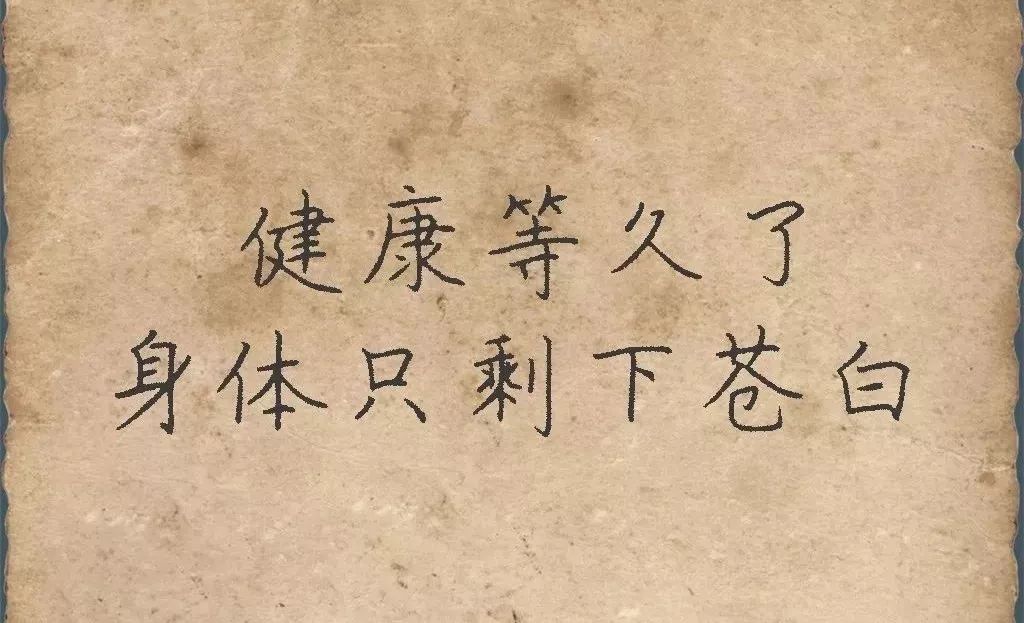 健康等久了
身体只剩下苍白